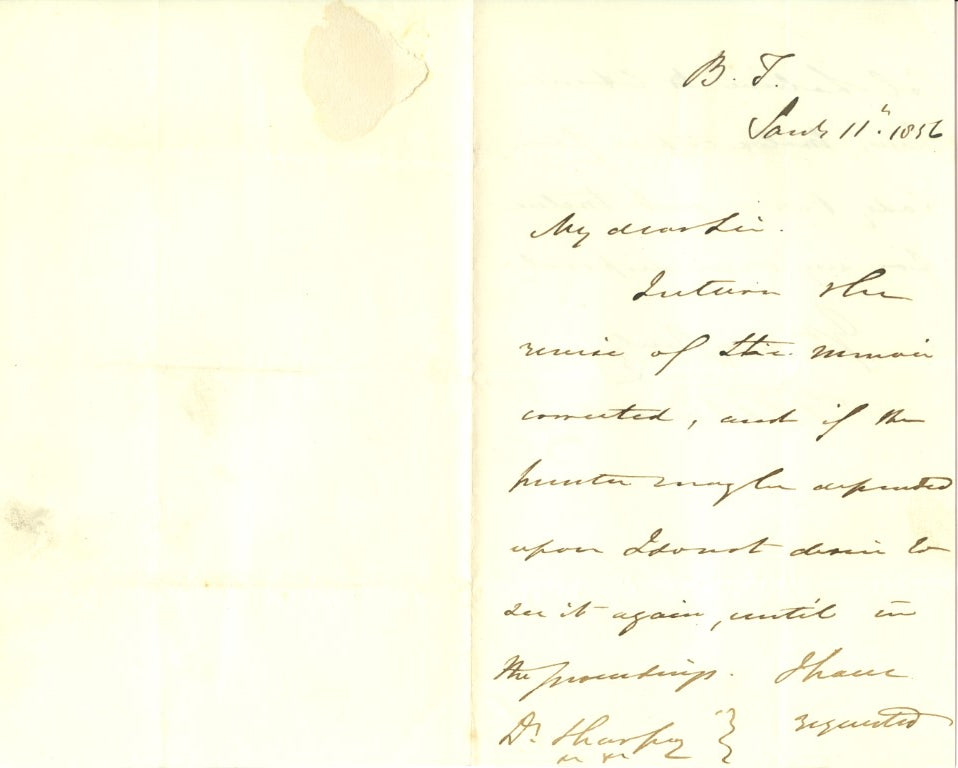 B. T.
Jany 11th. 1856
My dear Sir.
I return the
revise of the memoir
corrected, and if the
printer may be depended
upon I do not desire to
see it again, until in
the proceedings. I have
Dr Sharpey } requested